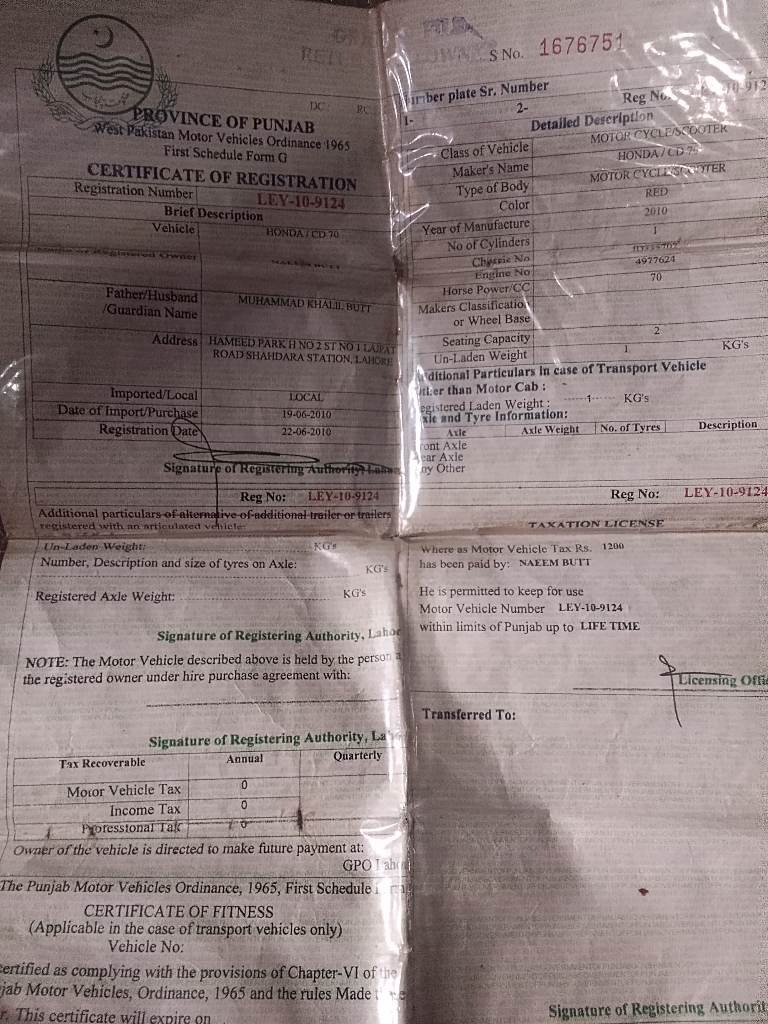 S No. 1676751
DC: RC
PROVINCE OF PUNJAB
West Pakistan Motor Vehicles Ordinance 1965
First Schedule Form G
CERTIFICATE OF REGISTRATION
Registration Number LEY-10-9124
Brief Description
Vehicle HONDA / CD 70
NAEEM BUTT
Father/Husband MUHAMMAD KHALIL BUTT
/Guardian Name
Address HAMEED PARK H NO 2 ST NO 1 LAJPAT
ROAD SHAHDARA STATION, LAHORE
Imported/Local LOCAL
Date of Import/Purchase 19-06-2010
Registration Date 22-06-2010
Signature of Registering Authority, Lahore
Reg No: LEY-10-9124
Additional particulars of alternative of additional trailer or trailers
registered with an articulated vehicle:
Un-Laden Weight: KG's
Number, Description and size of tyres on Axle: KG's
Registered Axle Weight: KG's
Signature of Registering Authority, Lahor
NOTE: The Motor Vehicle described above is held by the person a
the registered owner under hire purchase agreement with:
Signature of Registering Authority, La
Tax Recoverable Annual Quarterly
Motor Vehicle Tax 0
Income Tax 0
Professional Tax 0
Owner of the vehicle is directed to make future payment at:
GPO Laho
The Punjab Motor Vehicles Ordinance, 1965, First Schedule
CERTIFICATE OF FITNESS
(Applicable in the case of transport vehicles only)
Vehicle No:
ertified as complying with the provisions of Chapter-VI of the
jab Motor Vehicles, Ordinance, 1965 and the rules Made
r. This certificate will expire on
umber plate Sr. Number Reg No.
1- 2-
Detailed Description
Class of Vehicle MOTOR CYCLE/SCOOTER
Maker's Name HONDA / CD
Type of Body MOTOR CYCLE/SCOOTER
Color RED
Year of Manufacture 2010
No of Cylinders 1
Chassis No
Engine No 4977624
Horse Power/CC 70
Makers Classification
or Wheel Base
Seating Capacity 2
Un-Laden Weight 1 KG's
ditional Particulars in case of Transport Vehicle
ther than Motor Cab : -
egistered Laden Weight : 1 KG's
xle and Tyre Information:
Axle Axle Weight No. of Tyres Description
ront Axle
ear Axle
ny Other
Reg No: LEY-10-9124
TAXATION LICENSE
Where as Motor Vehicle Tax Rs. 1200
has been paid by: NAEEM BUTT
He is permitted to keep for use
Motor Vehicle Number LEY-10-9124
within limits of Punjab up to LIFE TIME
Licensing Offi
Transferred To:
Signature of Registering Authorit